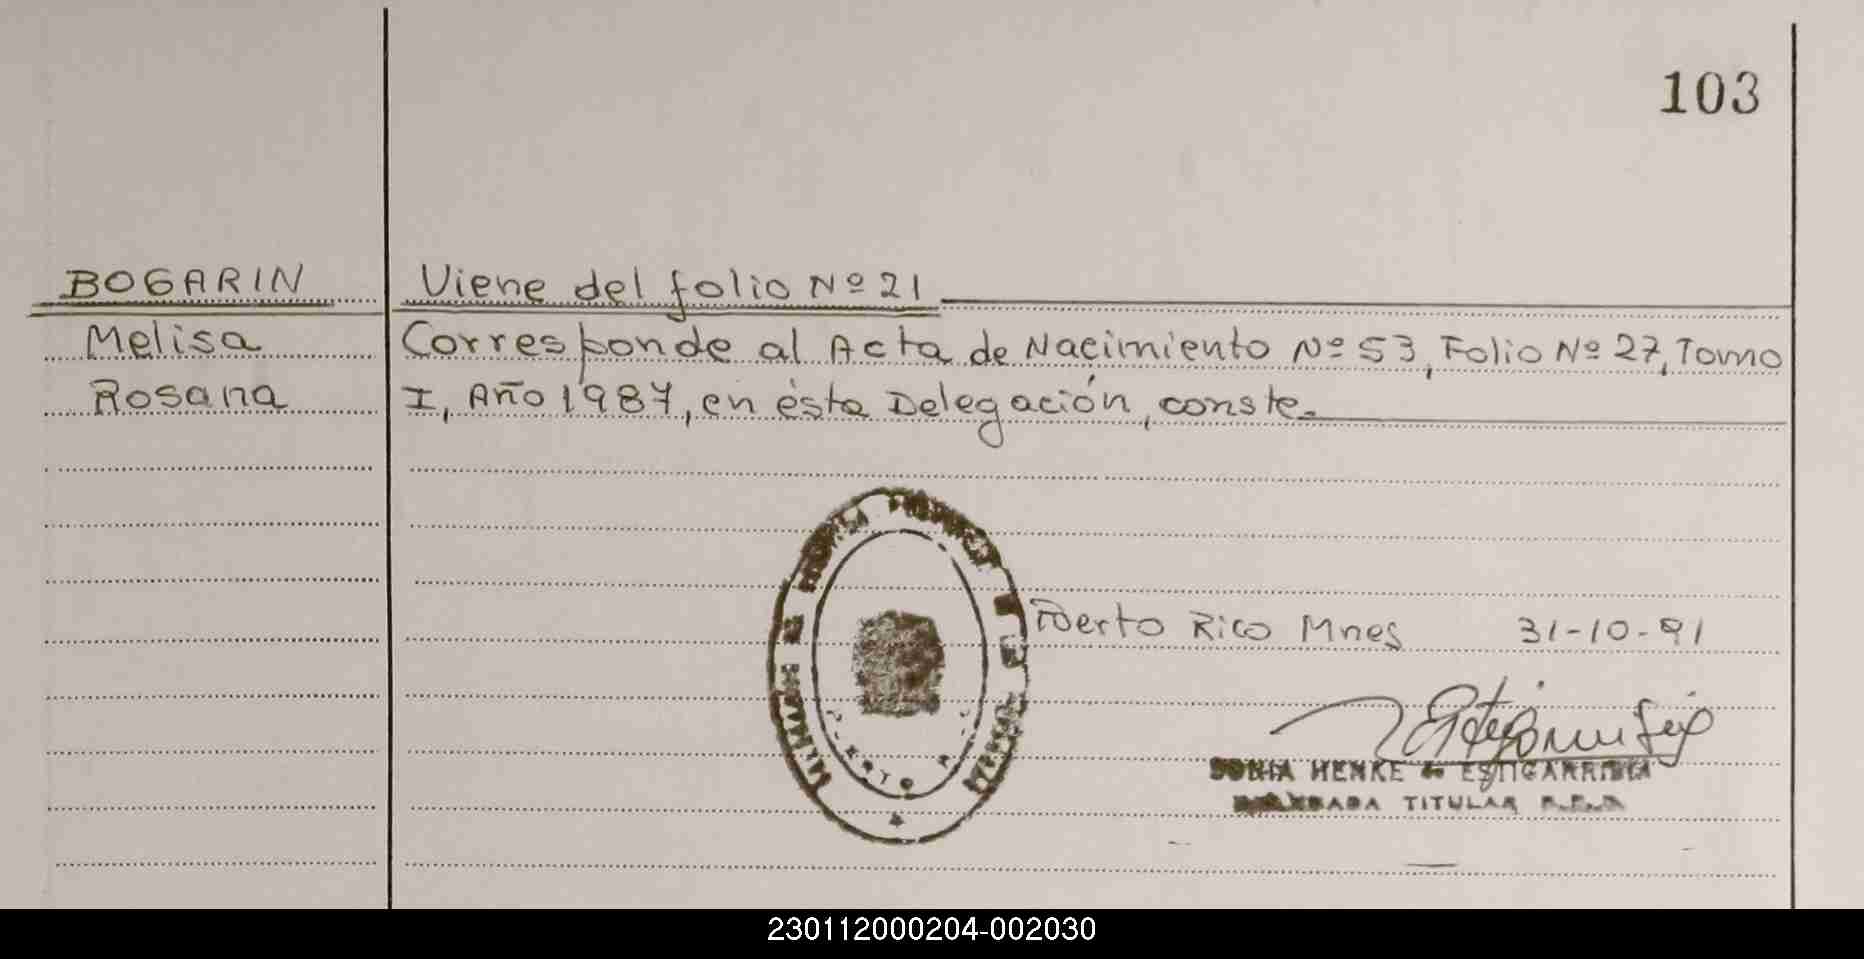 103
BOGARIN Viene del folio Nº 21
Melisa Corresponde al Acta de Nacimiento Nº 53, Folio Nº 27, Tomo
Rosana I, Año 1987, en ésta Delegación, conste.
Puerto Rico Mnes 31-10-91
SONIA HENKE de ESTIGARRIBIA
TITULAR
230112000204-002030